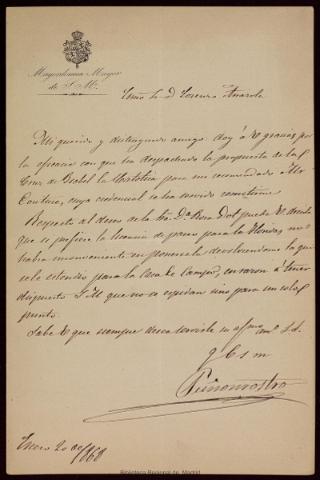 Mayordomia Mayor
de S. M.
Exmo Sr D Lorenzo Arrazola
Mi querido y distinguido amigo: doy á V gracias por
la eficacia con que ha despachado la propuesta de la
Cruz de Isabel la Católica para mi recomendado Mr
cuya credencial se ha servido remitirme
Respecto al deseo de la Sra Da puede V decirle
que si prefiere la licencia de paseo para la Florida no
habrá inconveniente en ponersela devolviendome la que
se le estendió para la Casa de Campo, en razon á tener
dispuesto S. M. que no se espidan sino para un solo
punto.
Sabe V que siempre desea servirle su afmo am. S.S.
q b s m
Puñonrostro
Enero 20 de 1868
Biblioteca Regional de Madrid